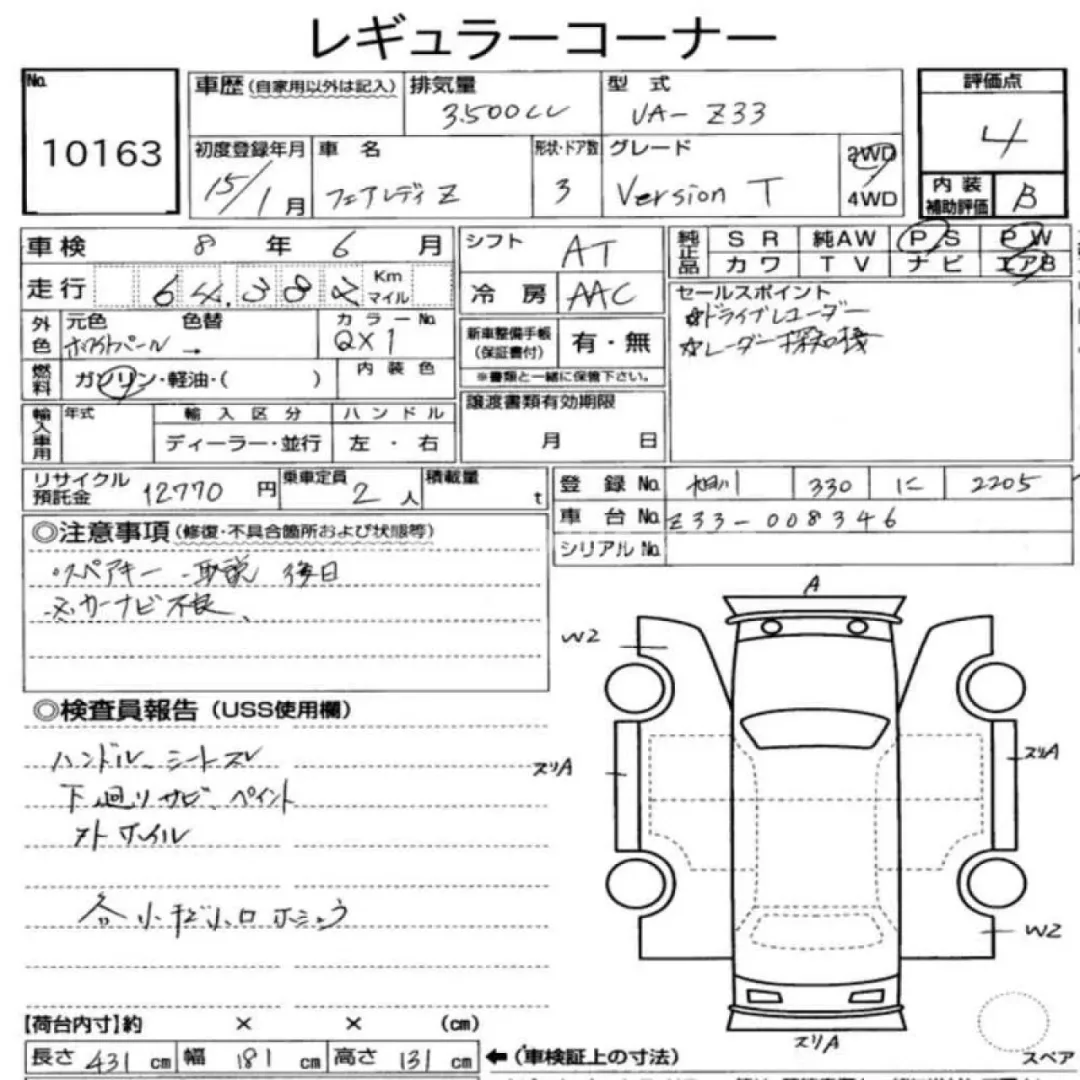 レギュラーコーナー
No. 10163
車歴(自家用以外は記入) 排気量 3.500cc 型式 UA- Z33
初度登録年月 15/1月 車名 フェアレディZ 形状・ドア数 3 グレード Version T 2WD 4WD
評価点 4
内装補助評価 B
車検 8年 6月
走行 64.382 Km マイル
外色 元色 ホワイトパール 色替 → カラーNo. QX1
燃料 ガソリン・軽油・( ) 内装色
輸入車用 年式 輸入区分 ディーラー・並行 ハンドル 左・右
シフト AT
冷房 AAC
新車整備手帳(保証書付) 有・無
※書類と一緒に保管下さい。
譲渡書類有効期限
月 日
純正品 SR 純AW PS PW
カワ TV ナビ エアB
セールスポイント
☆ドライブレコーダー
☆レーダー探知機
リサイクル預託金 12770円 乗車定員 2人 積載量 t
登録No. 旭川 330 に 2205
車台No. Z33-008346
シリアルNo.
◎注意事項(修復・不具合箇所および状態等)
・スペアキー ・取説 後日
・カーナビ不良
◎検査員報告(USS使用欄)
ハンドル シートスレ
下廻りサビ ペイント
オイル
小キズ小凹
A
W2
スリA
スリA
W2
スリA
スペア
【荷台内寸】約 × × (cm)
長さ 431 cm 幅 181 cm 高さ 131 cm ←(車検証上の寸法)